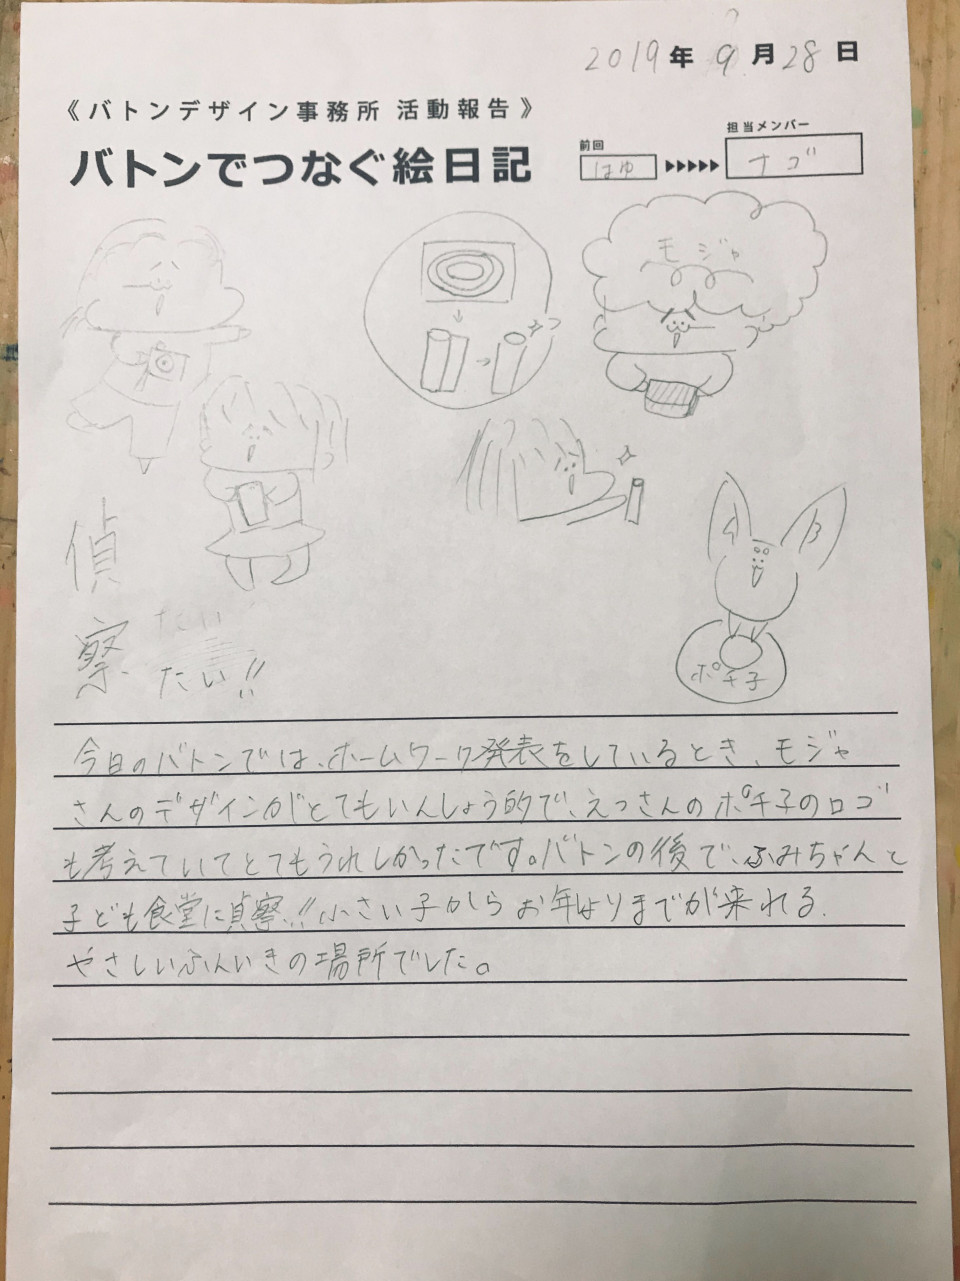 2019年 9月28日
《バトンデザイン事務所 活動報告》
バトンでつなぐ絵日記
前回
はゆ
担当メンバー
ナゴ
モジャ
A B
ポチ子
偵
察 たい
たい!!
今日のバトンでは、ホームワーク発表をしているとき、モジャ
さんのデザインがとてもいんしょう的で、えっさんのポチ子のロゴ
も考えていてとてもうれしかったです。バトンの後で、ふみちゃんと
子ども食堂に偵察!!小さい子からお年よりまでが来れる、
やさしいふんいきの場所でした。